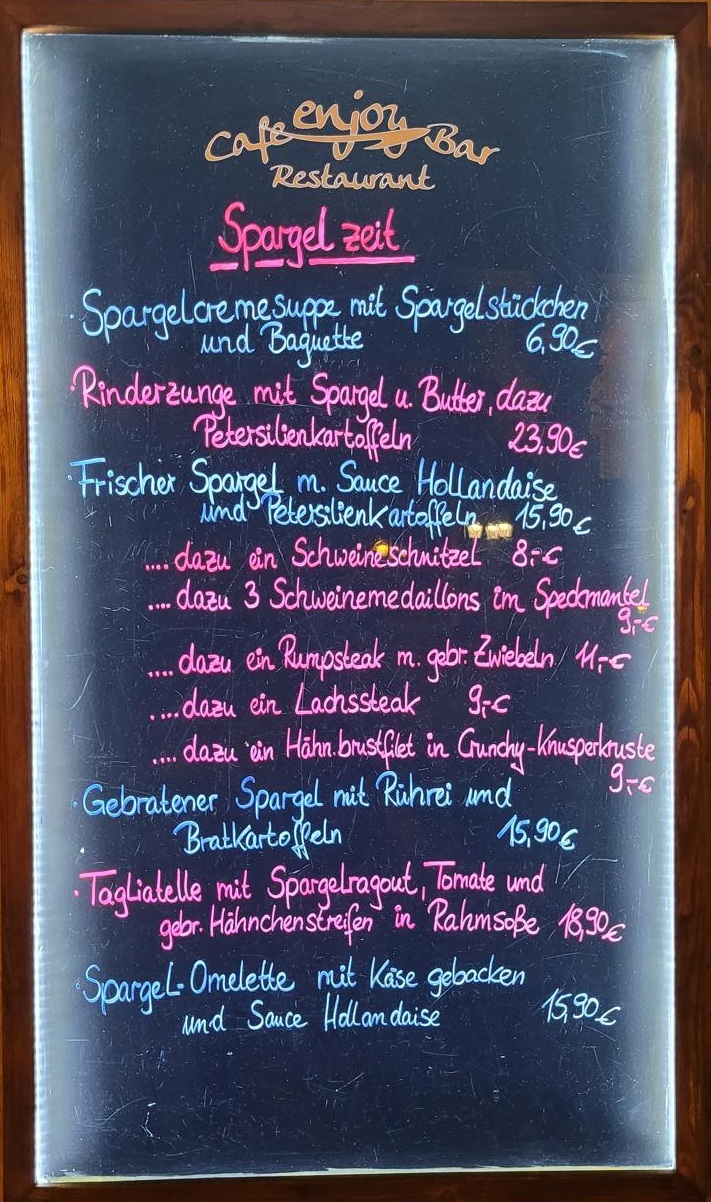 enjoy
Café Bar
Restaurant
Spargelzeit
· Spargelcremesuppe mit Spargelstückchen
und Baguette 6,90€
· Rinderzunge mit Spargel u. Butter, dazu
Petersilienkartoffeln 23,90€
· Frischer Spargel m. Sauce Hollandaise
und Petersilienkartoffeln 15,90€
.... dazu ein Schweineschnitzel 8,-€
.... dazu 3 Schweinemedaillons im Speckmantel
9,-€
.... dazu ein Rumpsteak m. gebr. Zwiebeln 11,-€
.... dazu ein Lachssteak 9,-€
.... dazu ein Hähn.brustfilet in Crunchy-Knusperkruste
9,-€
· Gebratener Spargel mit Rührei und
Bratkartoffeln 15,90€
· Tagliatelle mit Spargelragout, Tomate und
gebr. Hähnchenstreifen in Rahmsoße 18,90€
· Spargel-Omelette mit Käse gebacken
und Sauce Hollandaise 15,90€